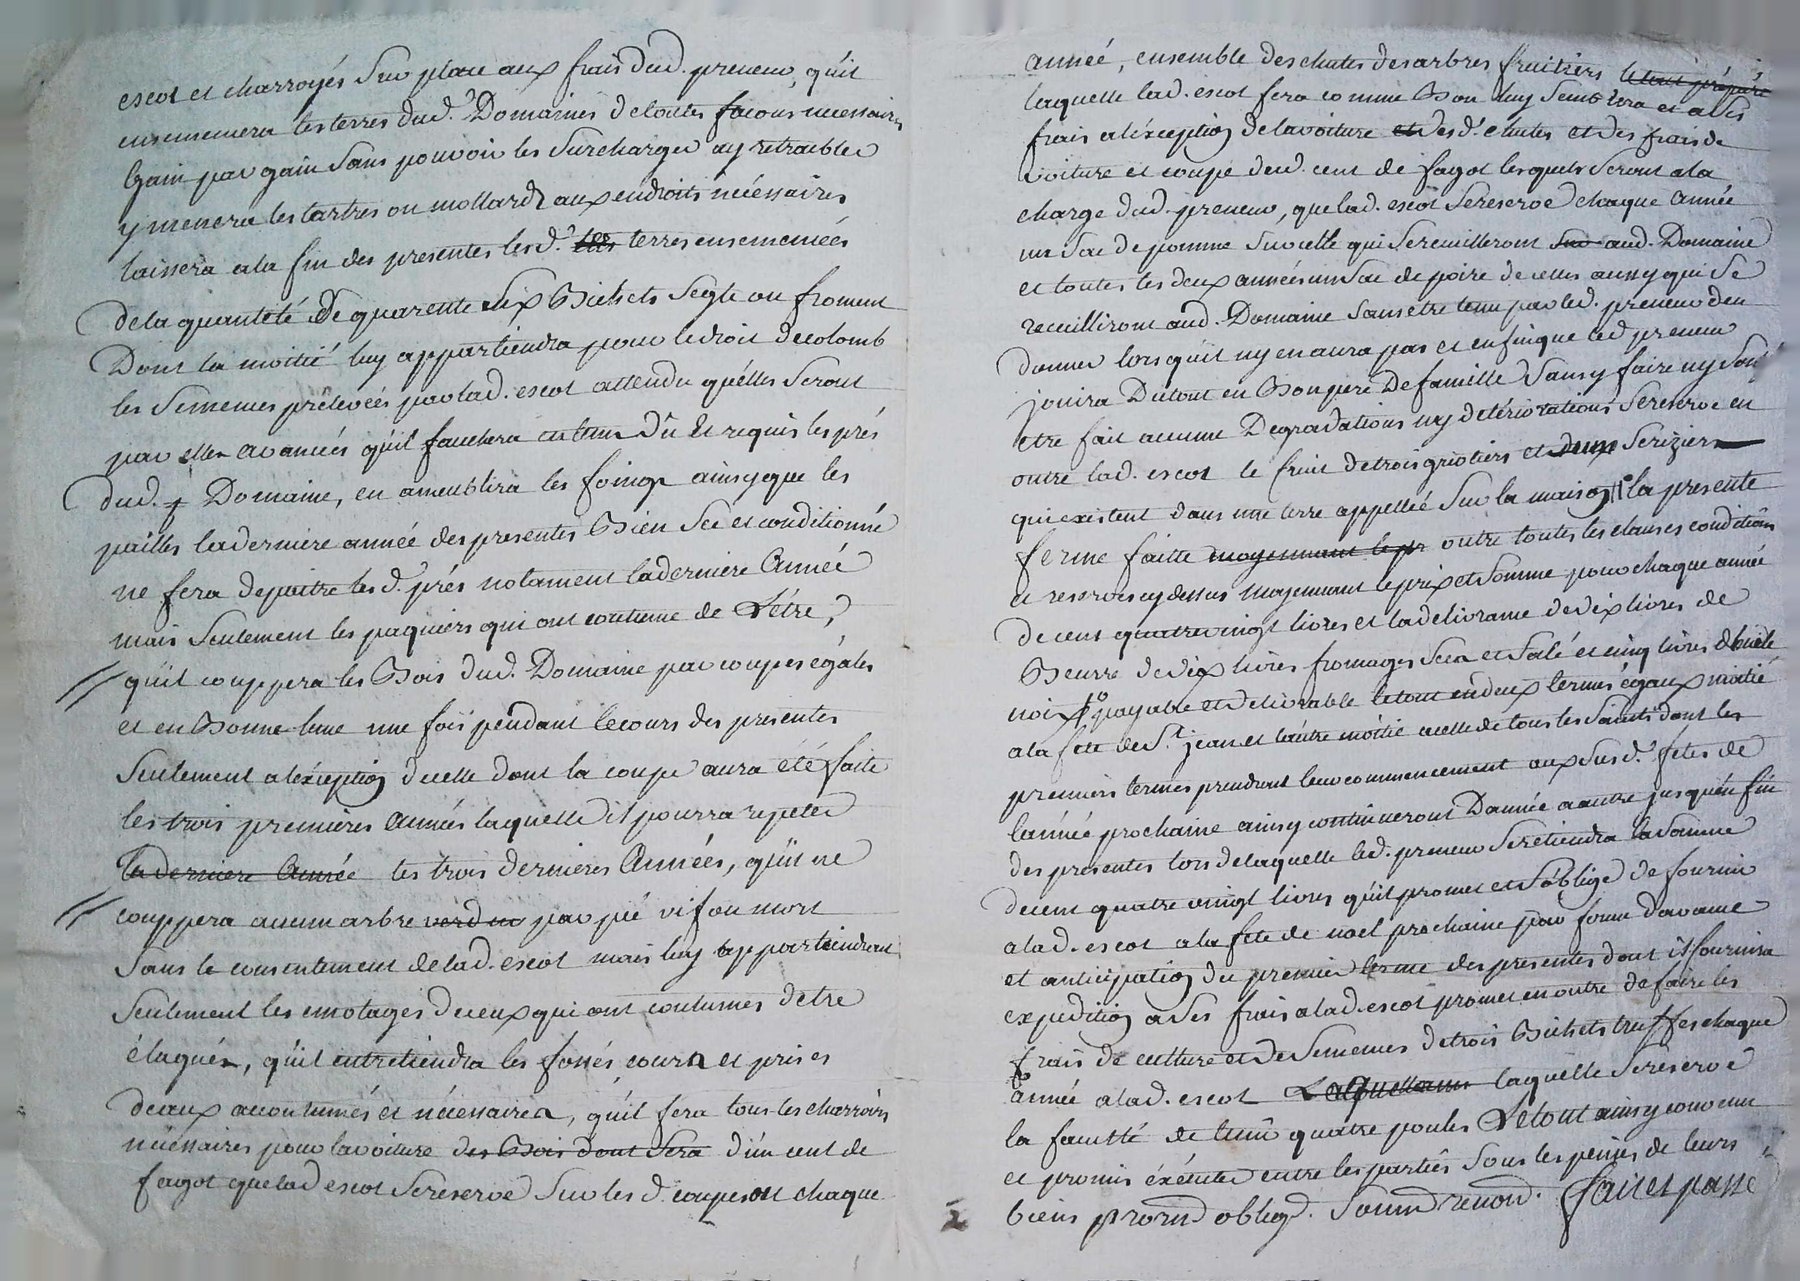 escot et charroyés sur place aux frais dud. preneur, qu'il
ensemencera les terres dud.t Domaines de touttes facons necessaires
gain par gain sans pouvoir les surcharger ny retroubler
y menera les tartres ou mollards aux endroits nécéssaires
laissera a la fin des presentes lesd.t terres ensemencées
de la quantité de quarente six Bichets segle ou froment
Dont la moitié luy appartiendra pour le droit de colomb
les semences prélevées par lad. escot attendu quélles seront
par elle avancées qu'il fauchera en tems dû et requis les prés
dud. Domaine, en ameublira les foings ainsy que les
pailles la derniere année des presentes Bien sec et conditionné
ne fera depaitre lesd.t prés notament la derniere Année
mais seulement les paquiers qui ont coutume de L'étre,
// qu'il couppera les Bois dud. Domaine par coupes égales
et en Bonne lune une fois pendant le cours des presentes
seulement a léxception de celle dont la coupe aura été faite
les trois premières Années laquelle il pourra repeter
la derniere Année les trois dernieres Années, qu'il ne
// couppera aucun arbre verd ou par pié vif ou mort
sans le consentement de lad. escot mais luy appartiendront
seulement les emotages de ceux qui ont coutumes detre
élagués, qu'il entretiendra les fossés cours et prises
deaux accoutumés et nécéssaires, qu'il fera tous les charrois
nécéssaires pour la voiture des Bois dont sera d'un cent de
fagot que lad escot se reserve sur lesd. coupes ou chaque
année, ensemble des chutes des arbres fruitiers le tout préparé
laquelle lad. escot fera comme Bon luy semblera et a ses
frais a léxception de la voiture et desd.t chutes et des frais de
voiture et coupe dud. cent de fagot lesquels seront a la
charge dud. preneur, que lad. escot se reserve chaque année
un sac de pomme sur celle qui se reuilleront sur aud. Domaine
et toutes les deux années un sac de poire de celles aussy qui se
recuilliront aud. Domaine sans être tenu par led. preneur den
donner lors qu'il ny en aura pas et enfin que led preneur
jouira Du tout en Bon pere De famille sans y faire ny souf
etre fait aucune Degradations ny detériorations se reserve en
outre lad. escot le fruit de trois griotiers et deux seriziers
qui existent dans une terre appellée sur la maison // la presente
ferme faitte moyennant le pr outre toutes les clauses conditions
et reserves cy dessus moyennant le prix et somme pour chaque année
de cent quatre vingt livres et la delivrance de dix livres de
Beurre de dix livres fromages secs et salé et cinq livres dhuile
noix payable et delivrable le tout en deux termes égaux moitié
a la fete de S.t jean et láutre moitié a celle de tous les saints dont les
premiers termes prendront leur commencement aux susd.t fetes de
lannée prochaine ainsy continueront Dannée a autre jusquén fin
des presentes lors de laquelle led. preneur se retiendra la somme
de cent quatre vingt livres qu'il promet et s'oblige de fournir
a lad. escot a la fete de noel prochaine par forme davance
et anticipation du premier terme des presentes dont il fournira
expedition a ses frais a lad. escot promet en outre de faire les
frais de culture et de semences de trois Bichets truffes chaque
année a lad. escot Laquellaur laquelle se reserve
la faculté de tenir quatre poules Le tout ainsy convenu
et promis éxécuter entre les parties sous les peines de leurs
biens pr. obliga. renon. fait et passé